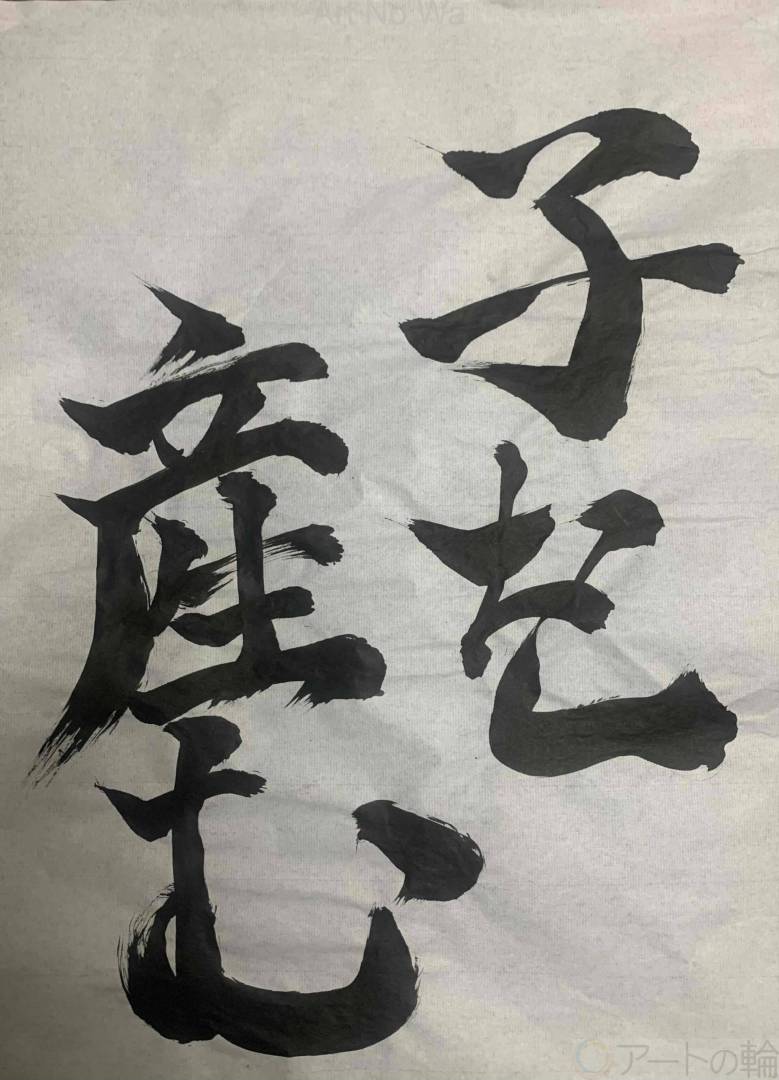 子を
産む
Art No Wa
アートの輪